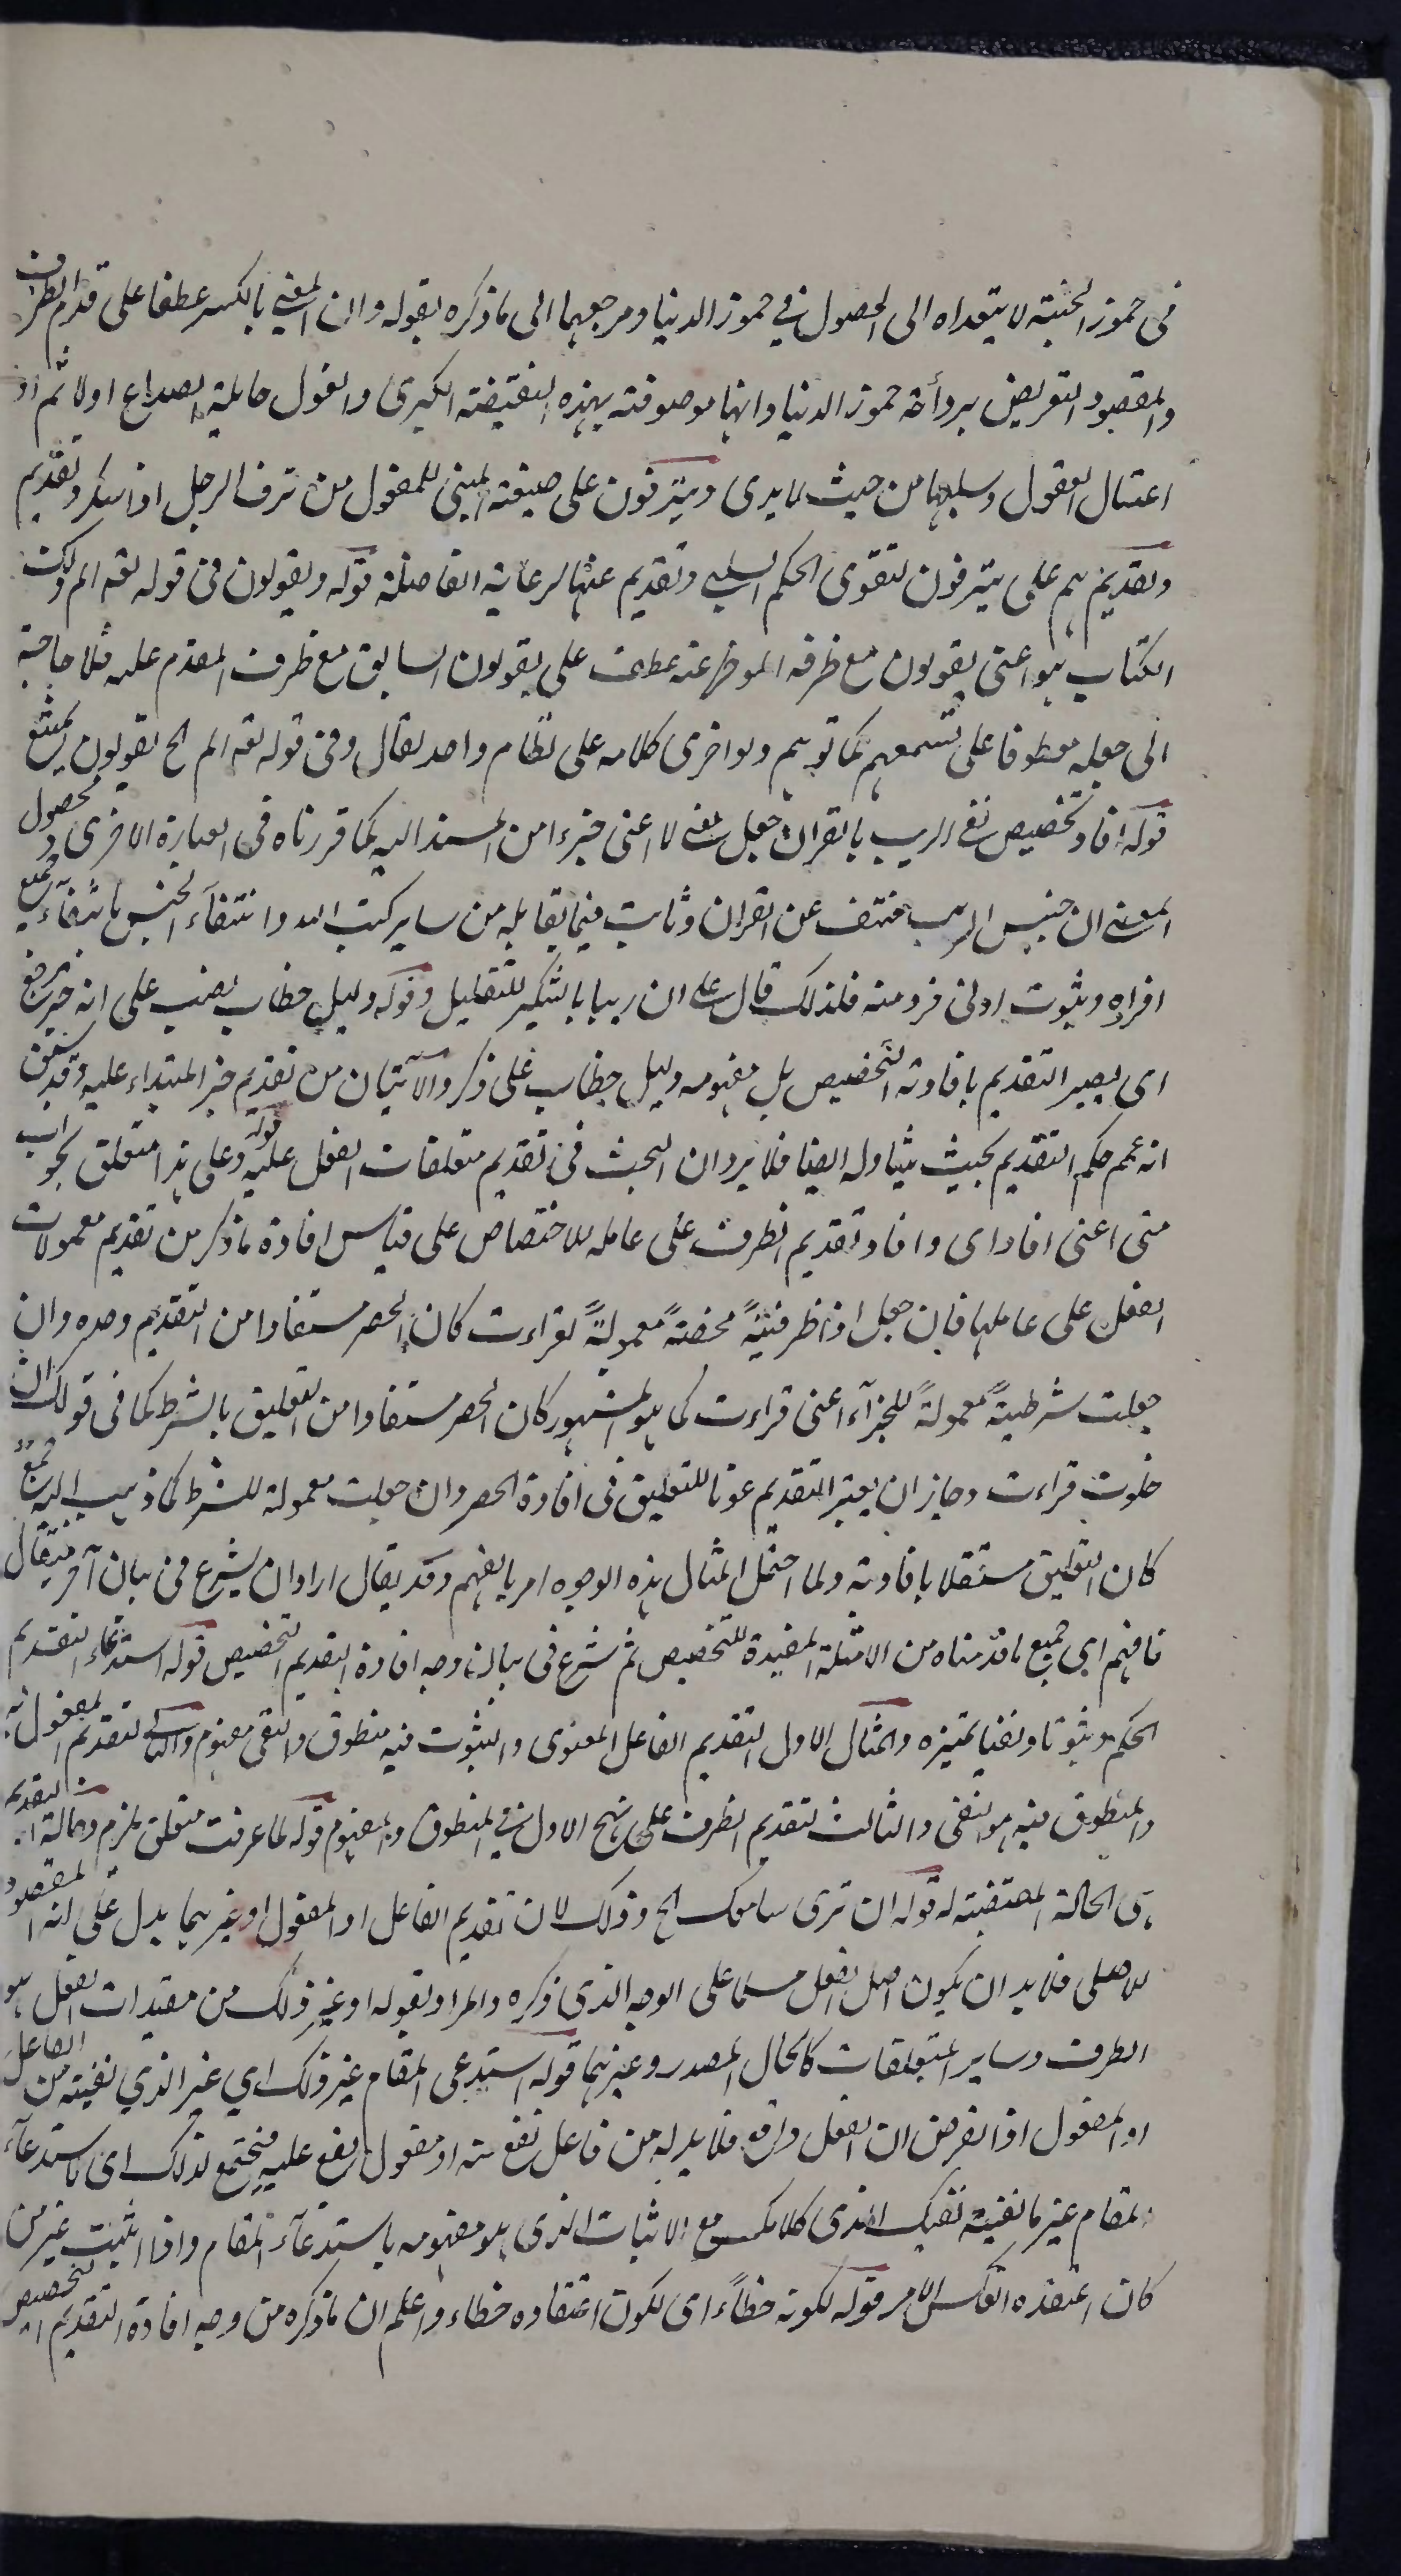 فى خمور الجنة لا يتعداه الى الحصول فى خمور الدنيا ومرجعهما الى ما ذكره بقوله وان المعنى بالكسر عطفا على قدم الظرف
والمقصود التعريض برداءة خمور الدنيا وانها موصوفة بهذه النقيصة الكبرى والغول حاملة الصداع اولا ثم اذ
اغتيال العقول وسلبها من حيث لا يدرى وينزفون على صيغة المبنى للمفعول من نزف الرجل اذا سكر وتقديم
وتقديم هم على ينزفون لتقوى الحكم السلبى وتقديم عنها لرعاية الفاصلة قوله ويقولون فى قوله تعه الم ذلك
الكتاب هو اعنى يقولون مع ظرفه الموخر عنه عطف على يقولون السابق مع ظرف المقدم عليه فلا حاجة
الى جعله معطوفا على تسمعهم كما توهم ولو اخرى كلامه على نظام واحد لقال وفى قوله تعه الم الخ يقولون يمتنع
قوله افاد تخصيص نفى الريب بالقران جعل معنى لا اعنى جزءا من المسند اليه كما قررناه فى العبارة الاخرى ومحصول
المعنى ان جنس الريب منتف عن القران وثابت فيما يقابله من ساير كتب الله وانتفاء الجنس بانتفاء جميع
افراده وبثوت ادنى فرد منه فلذلك قال على ان ريبا بالتنكير للتقليل وقوله دليل خطاب نصب على انه خبر يرجع
اى يصير التقديم بافادته التخصيص بل مفهومه دليل خطاب على ذكر والآيتان من تقديم خبر المبتداء عليه وقد سبق
انه عمم حكم التقديم بحيث يتناوله ايضا فلا يرد ان البحث فى تقديم متعلقات الفعل عليه قوله وعلى هذا متعلق بجواب
متى اعنى افاد اى وافاد تقديم الظرف على عامله للاختصاص على قياس افادة ما ذكر من تقديم معمولات
الفعل على عاملها فان جعل اذا ظرفيةً محضةً معمولةً لقراءت كان الحصر مستفادا من التقديم وحده وان
جعلت شرطيةً معمولةً للجزآء اعنى قراءت كما هو المشهور كان الحصر مستفادا من التعليق بالشرط كما فى قولك ان
خلوت قراءت وجاز ان يعتبر التقديم عونا للتعليق فى افادة الحصر وان جعلت معمولة للشرط كما ذهب اليه جمع
كان التعليق مستقلا بافادته ولما احتمل المثال هذه الوجوه امر بالفهم وقد يقال اراد ان يشرع فى بيان آخر فقال
فافهم اى جميع ما قدمناه من الامثلة المفيدة للتخصيص ثم شرع فى بيان وجه افادة التقديم التخصيص قوله استدعاء التقديم
الحكم ثبوتا ونفيا بتميزه والمثال الاول لتقديم الفاعل المعنوى والثبوت فيه منطوق والنفى مفهوم والثانى لتقديم المفعول به
والمنطوق فيه هو النفى والثالث لتقديم الظرف على نهج الاول فى المنطوق والمفهوم قوله لما عرفت متعلق بلزم وحالة التقديم
هى الحالة المقتضية له قوله ان ترى سامعك الخ وذلك لان تقديم الفاعل او المفعول او غيرهما يدل على انه المقصود
الاصلى فلا بد ان يكون اصل الفعل مسلما على الوجه الذى ذكره والمراد بقوله او غير ذلك من مقيدات الفعل هو
الظرف وساير المتعلقات كالحال المصدر وغيرهما قوله استدعى المقام غير ذلك اي غير الذي نفيته من الفاعل
او المفعول اذا لفرض ان الفعل واقع فلا بد له من فاعل نقع منه او مفعول يقع عليه فيجتمع لذلك اى باستدعاء
المقام غير ما نفيته نفيك الذى كلامك مع الاثبات الذى هو مفهومه باستدعاء المقام واذا اثبت غير من
كان اعتقده انعكس الامر قوله لكونه خطاءً اى لكون اعتقاده خطاء واعلم ان ما ذكره من وجه افادة التقديم التخصيص